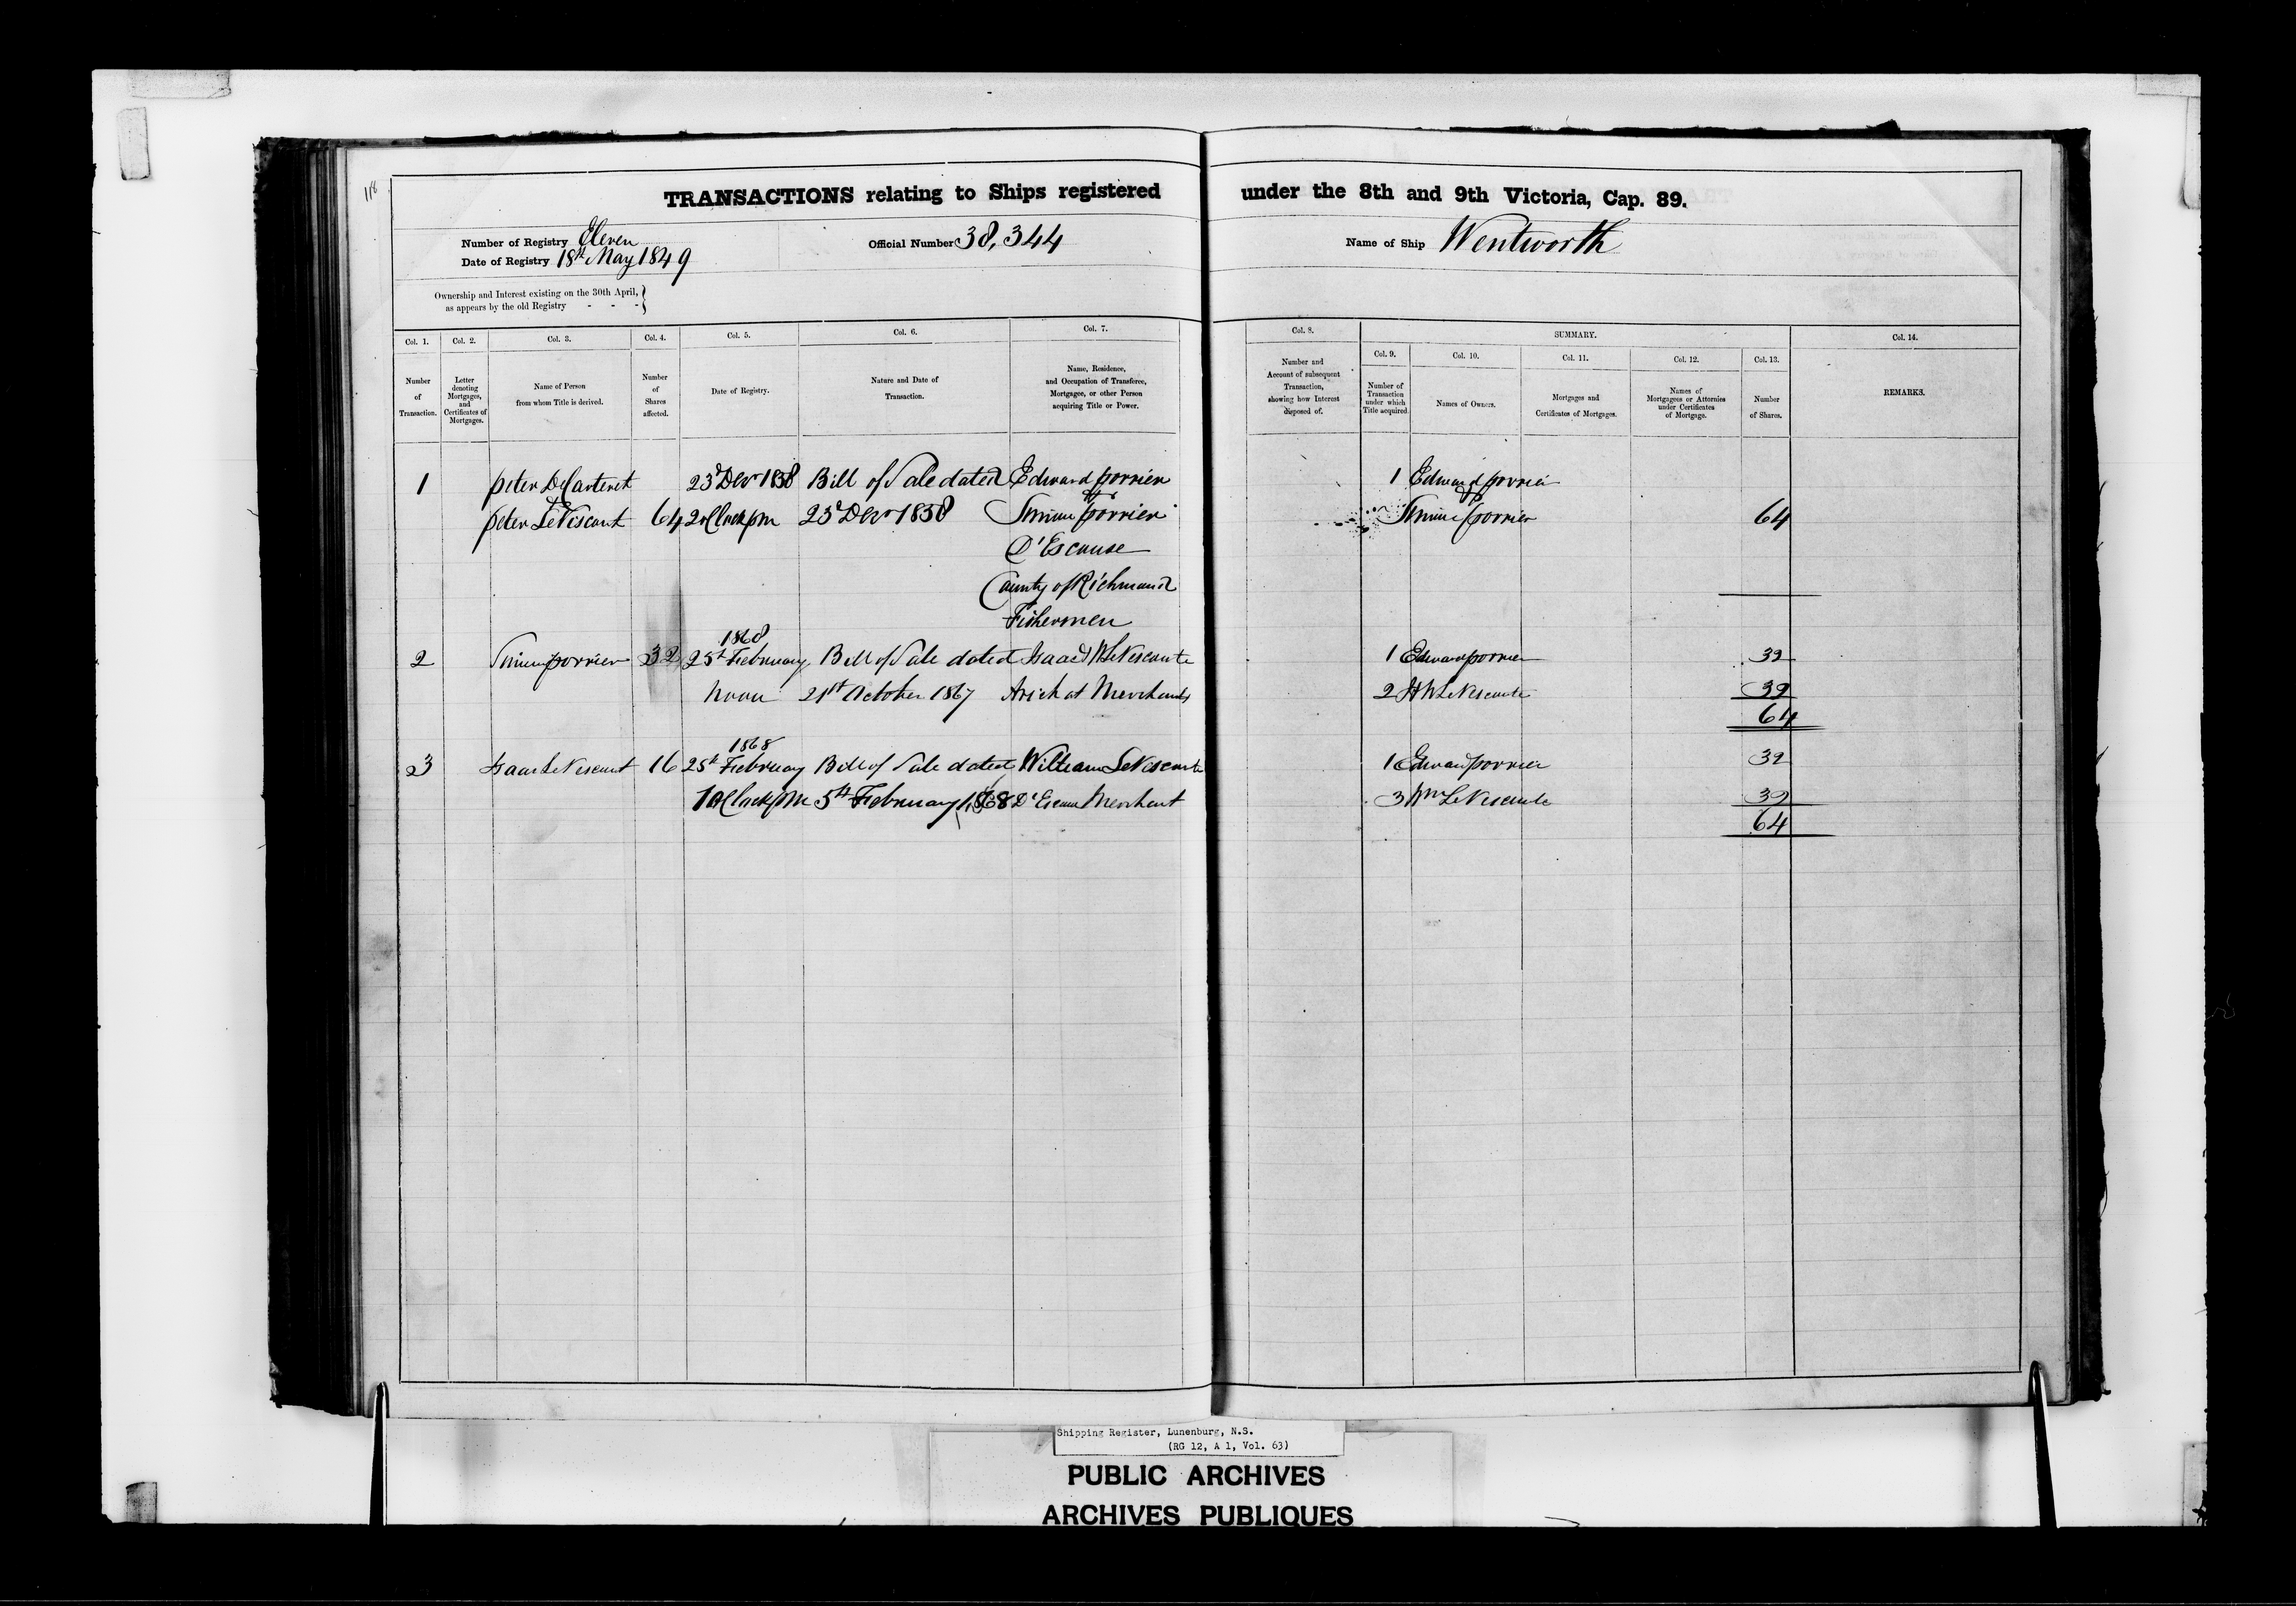 118
TRANSACTIONS relating to Ships registered under the 8th and 9th Victoria, Cap. 89.
Number of Registry Eleven
Date of Registry 18th May 1849
Official Number 38,344
Name of Ship Wentworth
Ownership and Interest existing on the 30th April,
as appears by the old Registry - - -
Col. 1. Number of Transaction.
Col. 2. Letter denoting Mortgages, and Certificates of Mortgages.
Col. 3. Name of Person from whom Title is derived.
Col. 4. Number of Shares affected.
Col. 5. Date of Registry.
Col. 6. Nature and Date of Transaction.
Col. 7. Name, Residence, and Occupation of Transferee, Mortgagee, or other Person acquiring Title or Power.
Col. 8. Number and Account of subsequent Transaction, showing how Interest disposed of.
SUMMARY.
Col. 9. Number of Transaction under which Title acquired.
Col. 10. Names of Owners.
Col. 11. Mortgages and Certificates of Mortgages.
Col. 12. Names of Mortgagees or Attornies under Certificates of Mortgage.
Col. 13. Number of Shares.
Col. 14. REMARKS.
1 Peter DeCarteret 23d Decr 1858 Bill of Sale dated Edward Porrier 1 Edward Porrier
& &
Peter LeViscount 64 2 oClock pm 23d Decr 1858 Simon Porrier Simon Porrier 64
D'Escouse
County of Richmond
Fishermen
1868
2 Simon Porrier 32 25th February Bill of Sale dated Isaac & W LeVisconte 1 Edward Porrier 32
Noon 21st October 1867 Arichat Merchants 2 LeVisconte 32
64
1868
3 Isaac LeViscount 16 25th February Bill of Sale dated William LeVisconte 1 Edward Porrier 32
1 oClock PM 5th February 1868 D'Escouse Merchant 3 Wm LeVisconte 32
64
Shipping Register, Lunenburg, N.S.
(RG 12, A 1, Vol. 63)
PUBLIC ARCHIVES
ARCHIVES PUBLIQUES